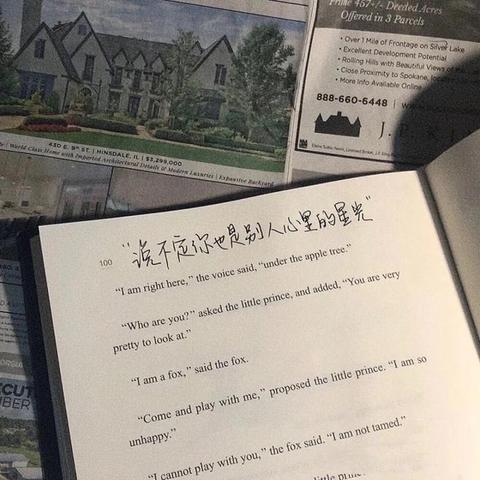 Prime 457+/- Deeded Acres
Offered in 3 Parcels
• Over 1 Mile of Frontage on Silver Lake
• Excellent Development Potential
• Rolling Hills with Beautiful Views of
• Close Proximity to Spokane,
• More Info Available Online
888-660-6448
430 E. 9th ST. | HINSDALE, IL | $3,299,000
World Class Home with Imported Architectural Details & Modern Luxuries | Expansive Backyard
100
“说不定你也是别人心里的星光”
“I am right here,” the voice said, “under the apple tree.”
“Who are you?” asked the little prince, and added, “You are very
pretty to look at.”
“I am a fox,” said the fox.
“Come and play with me,” proposed the little prince. “I am so
unhappy.”
“I cannot play with you,” the fox said. “I am not tamed.”
little prince